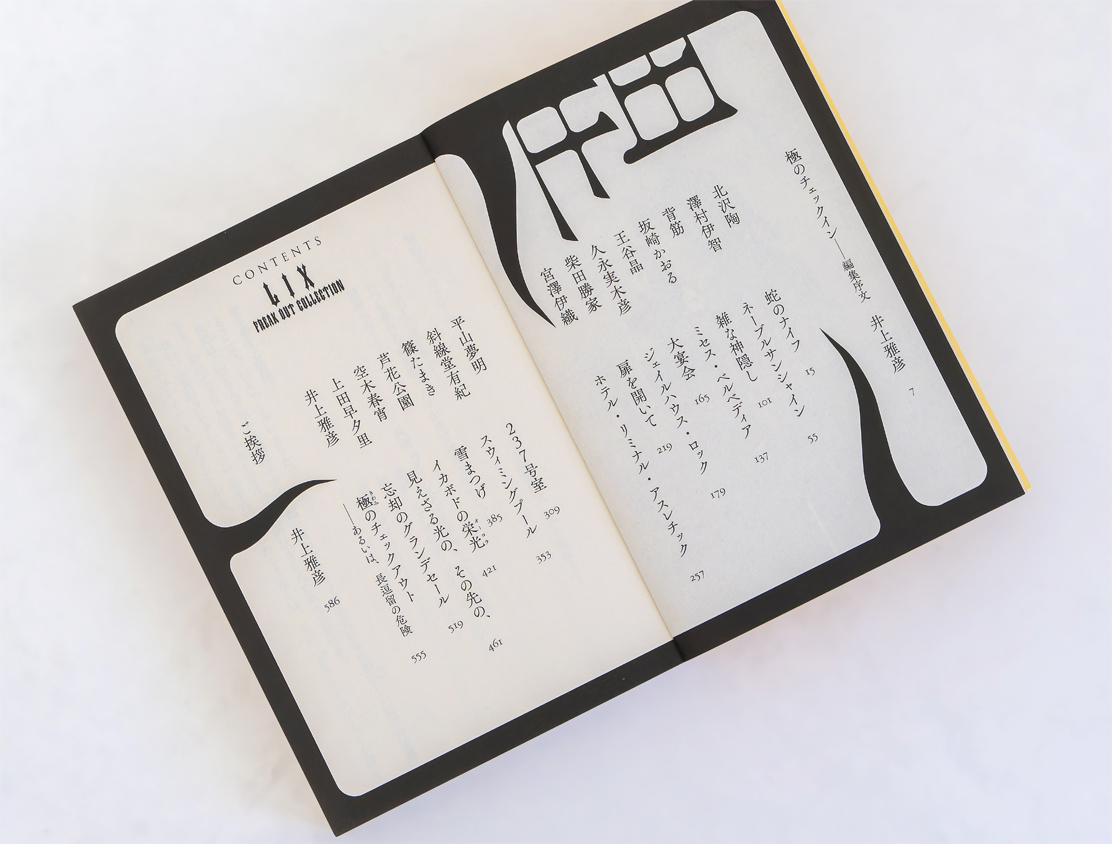 極のチェックイン――編集序文 井上雅彦 7
北沢陶 蛇のナイフ 15
澤村伊智 ネーブルサンシャイン 55
背筋 雑な神隠し 101
坂崎かおる ミセス・ベルベディア 137
王谷晶 大宴会 165
久永実木彦 ジェイルハウス・ロック 179
柴田勝家 扉を開いて 219
宮澤伊織 ホテル・リミナル・アスレチック 257
平山夢明 237号室 309
斜線堂有紀 スウィミングプール 353
篠たまき 雪まつげ 385
芦花公園 イカボドの栄光 421
空木春宵 見えざる光の、その先の、 461
上田早夕里 忘却のグランデセール 519
井上雅彦 極のチェックアウト
――あるいは、長逗留の危険 555
ご挨拶 井上雅彦 586
CONTENTS
LIX
FREAK OUT COLLECTION